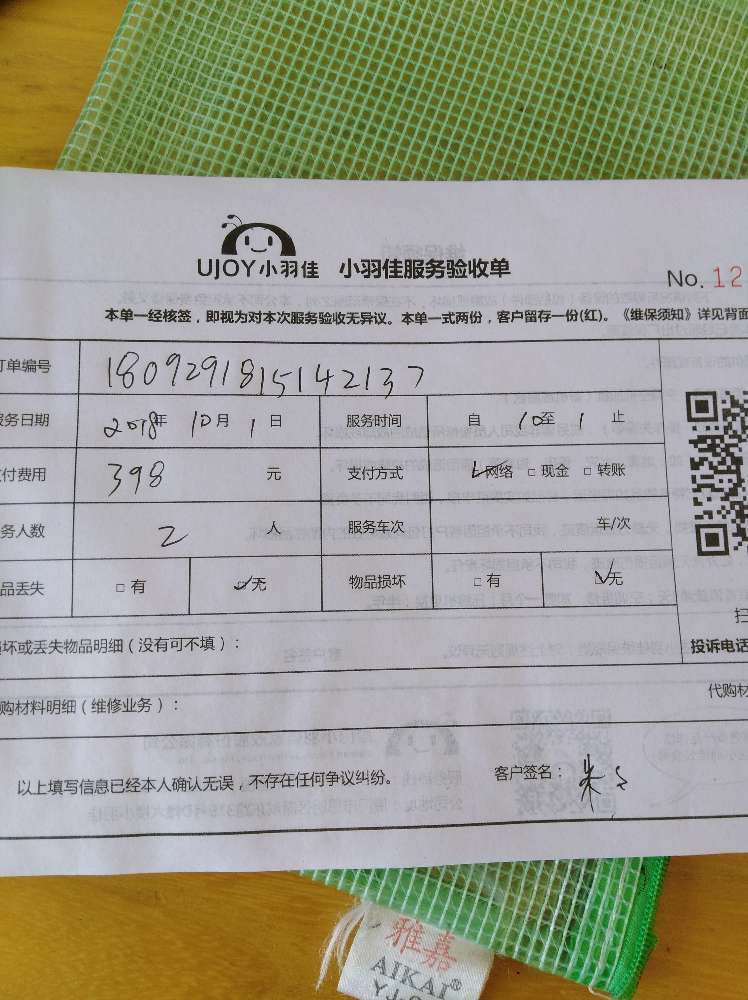 UJOY小羽佳 小羽佳服务验收单
No. 12
本单一经核签，即视为对本次服务验收无异议。本单一式两份，客户留存一份(红)。《维保须知》详见背面
订单编号 1809291815142137
服务日期 2018年 10月 1 日 服务时间 自 10至 1 止
支付费用 398 元 支付方式 网络 □ 现金 □ 转账
务人数 2 人 服务车次 车/次
品丢失 □ 有 ☑无 物品损坏 □ 有 ☑无
损坏或丢失物品明细（没有可不填）：
扫
投诉电话
购材料明细（维修业务）：
代购材
以上填写信息已经本人确认无误，不存在任何争议纠纷。
客户签名：朱
雅嘉
AIKAI®